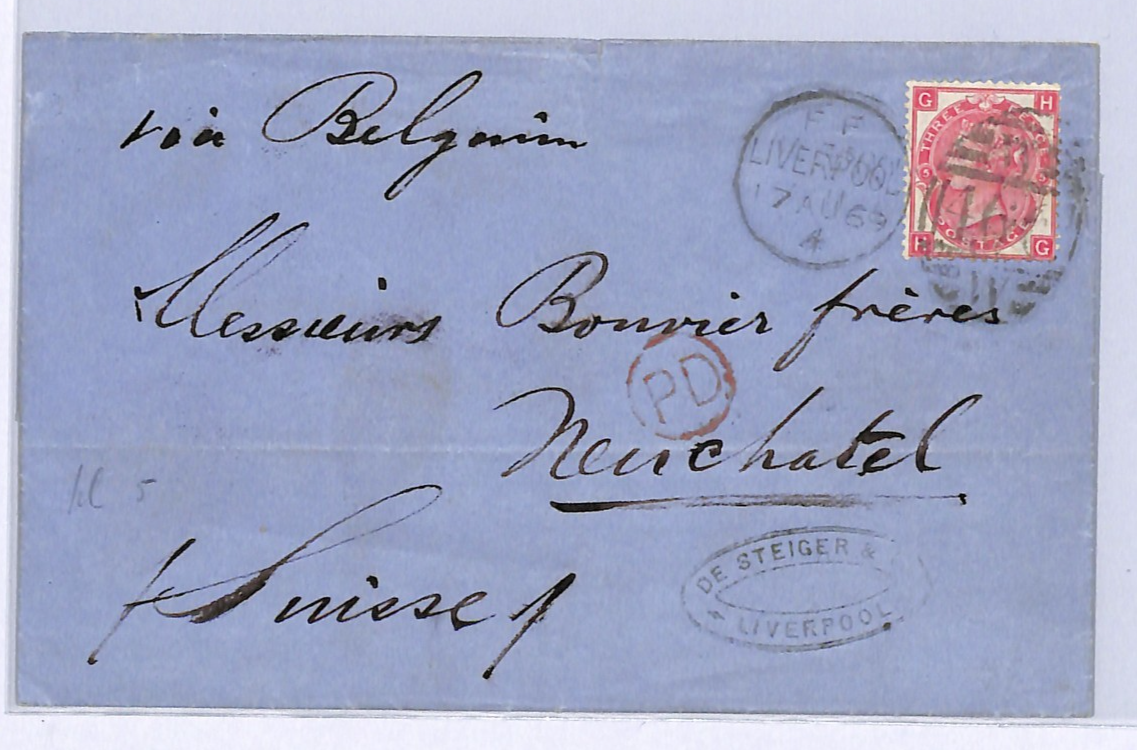 via Belgium
F F
LIVERPOOL
17 AU 69
4
G H
THREE PENCE
5 5
POSTAGE
H G
Messieurs Bouvier frères
PD
Neuchatel
5
(Suisse)
DE STEIGER &
LIVERPOOL